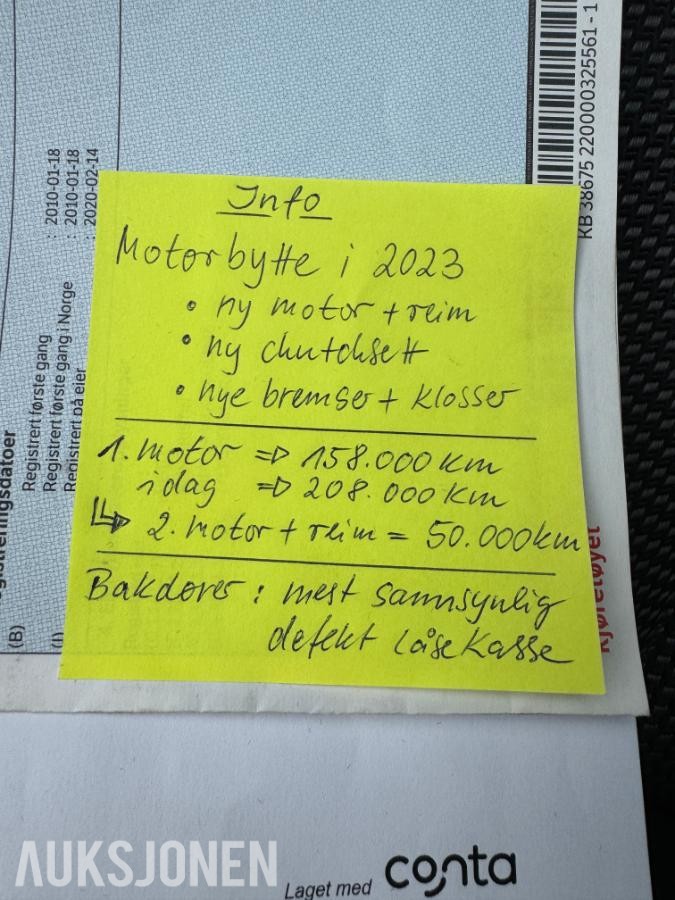 KB 38675 220000325561 - 1
: 2010-01-18
: 2010-01-18
: 2020-02-14
Registrert første gang
Registrert første gang i Norge
Registrert på eier
(B)
(I)
Info
Motorbytte i 2023
• ny motor + reim
• ny chutchsett
• nye bremser + klosser
1. motor ⇒ 158.000 km
i dag ⇒ 208.000 km
↳ 2. motor + reim = 50.000 km
Bakdører : mest sannsynlig
defekt låsekasse
Kjøretøyet
AUKSJONEN
Laget med conta